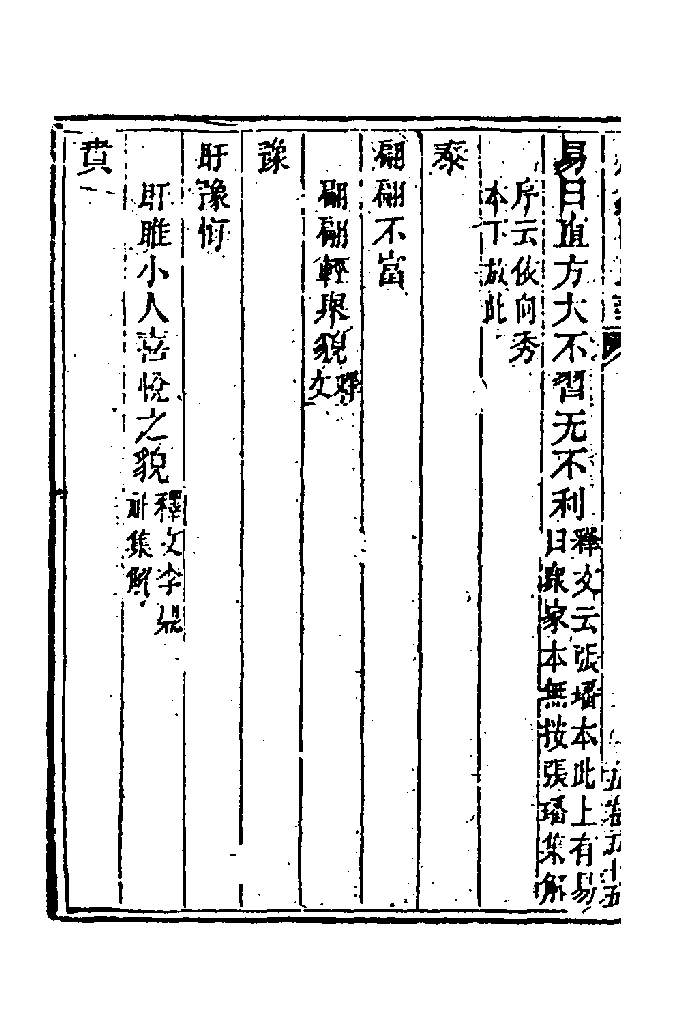 易曰直方大不習无不利釋文云張璠本此上有易
曰眾家本無按張璠集解
序云依向秀
本下放此
泰
翩翩不富
翩翩輕舉貌釋
文
豫
盱豫悔
盱睢小人喜悅之貌釋文李鼎
祚集解
賁